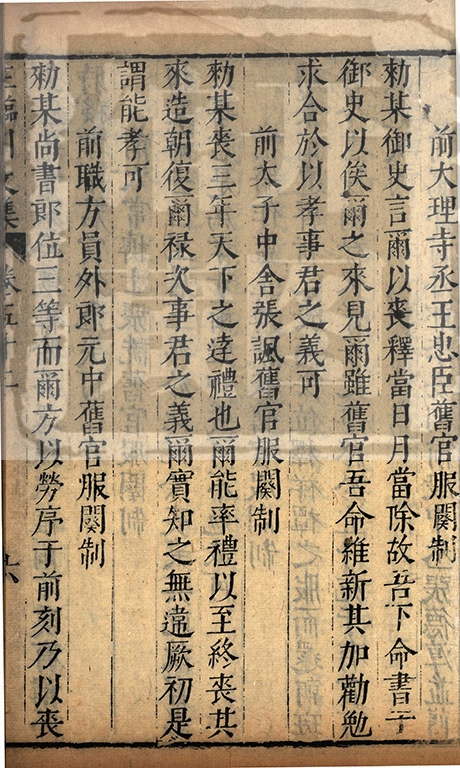 前大理寺丞王忠臣舊官服闋制
勑某御史言爾以喪釋當日月當除故吾下命書于
御史以俟爾之來見爾雖舊官吾命維新其加勸勉
求合於以孝事君之義可
前太子中舍張諷舊官服闋制
勑某喪三年天下之達禮也爾能率禮以至終喪其
來造朝復爾祿次事君之義爾實知之無違厥初是
謂能孝可
前職方員外郎元中舊官服闋制
勑某尚書郎位三等而爾方以勞序于前刻乃以喪
王臨川文集 卷五十二 九